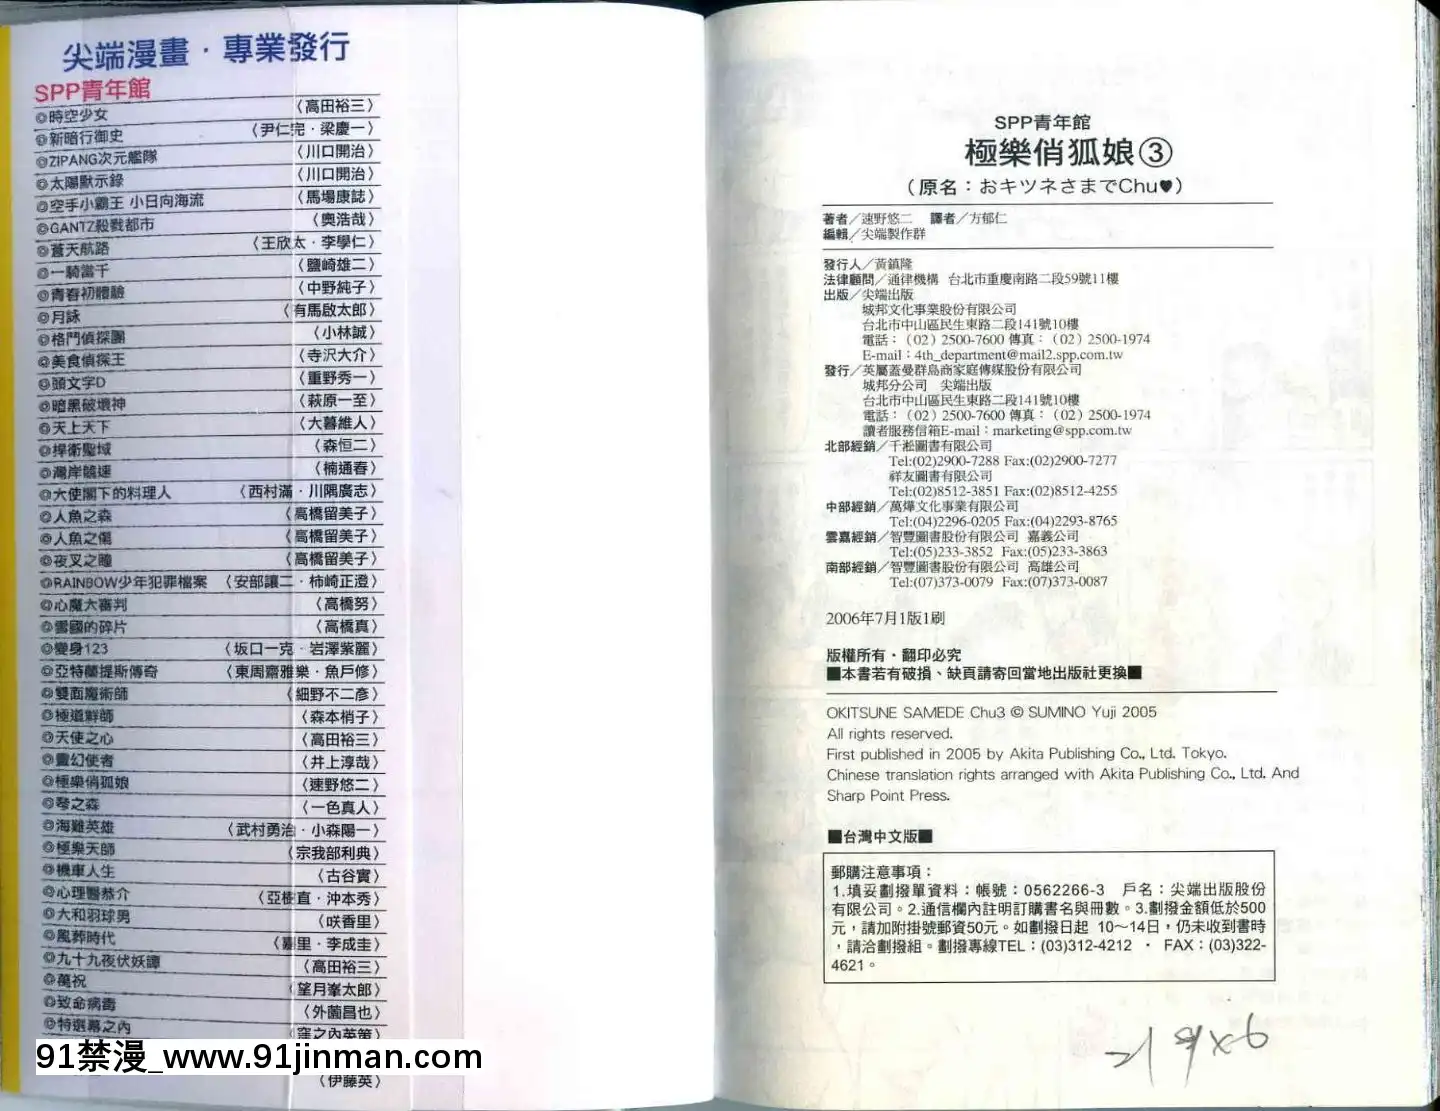 尖端漫畫・專業發行
SPP青年館
◎時空少女 〈高田裕三〉
◎新暗行御史 〈尹仁完・梁慶一〉
◎ZIPANG次元艦隊 〈川口開治〉
◎太陽默示錄 〈川口開治〉
◎空手小霸王 小日向海流 〈馬場康誌〉
◎GANTZ殺戮都市 〈奧浩哉〉
◎蒼天航路 〈王欣太・李學仁〉
◎一騎當千 〈鹽崎雄二〉
◎青春初體驗 〈中野純子〉
◎月詠 〈有馬啟太郎〉
◎格鬥偵探團 〈小林誠〉
◎美食偵探王 〈寺沢大介〉
◎頭文字D 〈重野秀一〉
◎暗黑破壞神 〈萩原一至〉
◎天上天下 〈大暮維人〉
◎捍衛聖域 〈森恒二〉
◎灣岸競速 〈楠通春〉
◎大使閣下的料理人 〈西村滿・川隅廣志〉
◎人魚之森 〈高橋留美子〉
◎人魚之傷 〈高橋留美子〉
◎夜叉之瞳 〈高橋留美子〉
◎RAINBOW少年犯罪檔案 〈安部讓二・柿崎正澄〉
◎心魔大審判 〈高橋努〉
◎雪國的碎片 〈高橋真〉
◎變身123 〈坂口一克・岩澤紫麗〉
◎亞特蘭提斯傳奇 〈東周齋雅樂・魚戶修〉
◎雙面魔術師 〈細野不二彥〉
◎極道鮮師 〈森本梢子〉
◎天使之心 〈高田裕三〉
◎靈幻使者 〈井上淳哉〉
◎極樂俏狐娘 〈速野悠二〉
◎琴之森 〈一色真人〉
◎海難英雄 〈武村勇治・小森陽一〉
◎極樂天師 〈宗我部利典〉
◎機車人生 〈古谷實〉
◎心理醫恭介 〈亞樹直・沖本秀〉
◎大和羽球男 〈咲香里〉
◎風葬時代 〈嘉里・李成圭〉
◎九十九夜伏妖譚 〈高田裕三〉
◎萬祝 〈望月峯太郎〉
◎致命病毒 〈外薗昌也〉
◎特選幕之內 〈窪之內英策〉
91禁漫_www.91jinman.com
〈伊藤英〉
SPP青年館
極樂俏狐娘③
（原名：おキツネさまでChu♥）
著者／速野悠二 譯者／方郁仁
編輯／尖端製作群
發行人／黃鎮隆
法律顧問／通律機構 台北市重慶南路二段59號11樓
出版／尖端出版
城邦文化事業股份有限公司
台北市中山區民生東路二段141號10樓
電話：（02）2500-7600 傳真：（02）2500-1974
E-mail：4th_department@mail2.spp.com.tw
發行／英屬蓋曼群島商家庭傳媒股份有限公司
城邦分公司 尖端出版
台北市中山區民生東路二段141號10樓
電話：（02）2500-7600 傳真：（02）2500-1974
讀者服務信箱E-mail：marketing@spp.com.tw
北部經銷／千淞圖書有限公司
Tel:(02)2900-7288 Fax:(02)2900-7277
祥友圖書有限公司
Tel:(02)8512-3851 Fax:(02)8512-4255
中部經銷／萬燁文化事業有限公司
Tel:(04)2296-0205 Fax:(04)2293-8765
雲嘉經銷／智豐圖書股份有限公司 嘉義公司
Tel:(05)233-3852 Fax:(05)233-3863
南部經銷／智豐圖書股份有限公司 高雄公司
Tel:(07)373-0079 Fax:(07)373-0087
2006年7月1版1刷
版權所有・翻印必究
■本書若有破損、缺頁請寄回當地出版社更換■
OKITSUNE SAMEDE Chu3 © SUMINO Yuji 2005
All rights reserved.
First published in 2005 by Akita Publishing Co., Ltd. Tokyo.
Chinese translation rights arranged with Akita Publishing Co., Ltd. And
Sharp Point Press.
■台灣中文版■
郵購注意事項：
1.填妥劃撥單資料：帳號：0562266-3 戶名：尖端出版股份
有限公司。2.通信欄內註明訂購書名與冊數。3.劃撥金額低於500
元，請加附掛號郵資50元。如劃撥日起 10～14日，仍未收到書時
，請洽劃撥組。劃撥專線TEL：(03)312-4212 ・ FAX：(03)322-
4621。